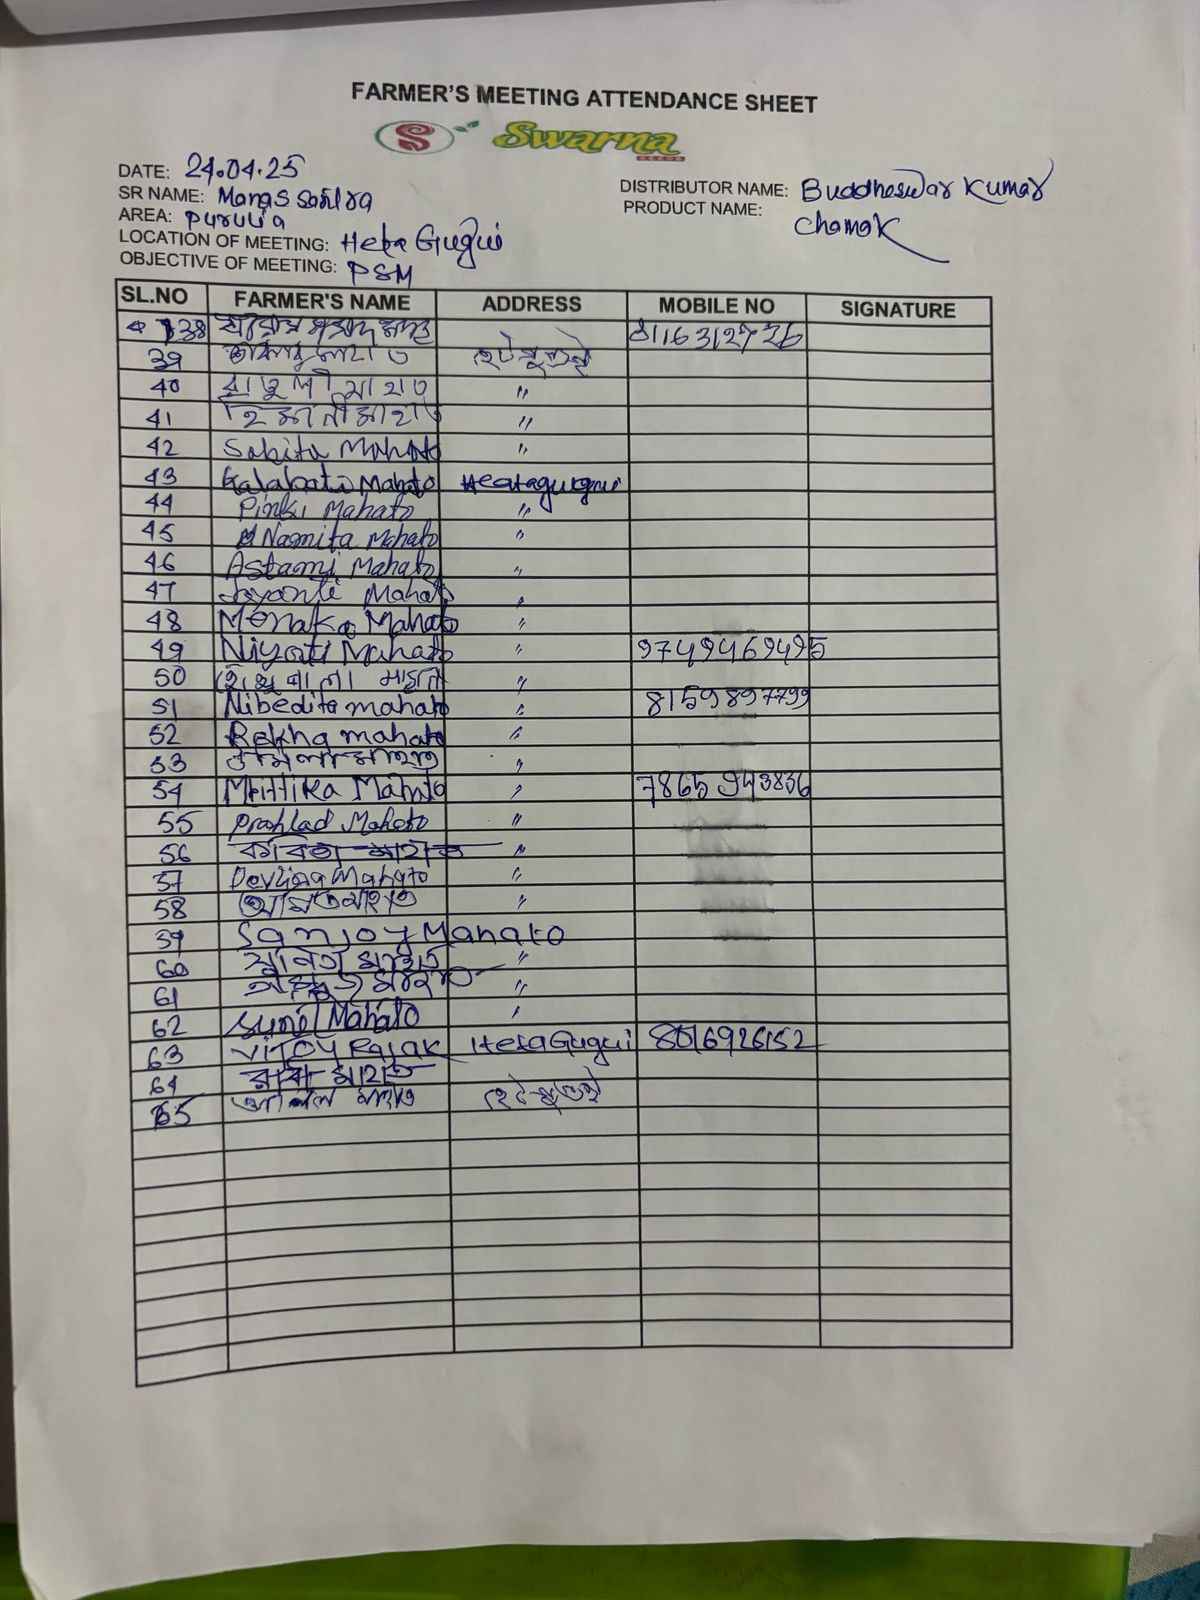 FARMER'S MEETING ATTENDANCE SHEET
Swarna
DATE: 24.04.25
SR NAME: Manas
AREA: Purulia
LOCATION OF MEETING: Heta Gugui
OBJECTIVE OF MEETING: PSM
DISTRIBUTOR NAME: Buddheswar Kumar
PRODUCT NAME: Chamak
SL.NO FARMER'S NAME ADDRESS MOBILE NO SIGNATURE
38 8116312726
39 মাহাত
40 মাহাত "
41 হিমানী মাহাত "
42 Sabita Mahato "
43 Kalabati Mahato Heatagugui
44 Pinki Mahato "
45 Namita Mahato "
46 Astami Mahato "
47 Jayanti Mahato "
48 Menaka Mahato "
49 Niyati Mahato " 9749469495
50 "
51 Nibedita mahato " 8159897799
52 Rekha mahato "
53 "
54 Mrittika Mahato " 7865943836
55 Prahlad Mahato "
56 কবিতা মাহাত "
57 Mahato "
58 "
59 Sanjoy Mahato
60 মাহাত "
61 "
62 Sunil Mahato "
63 VIJOY Rajak HetaGugui 8016926152
64 মাহাত
65